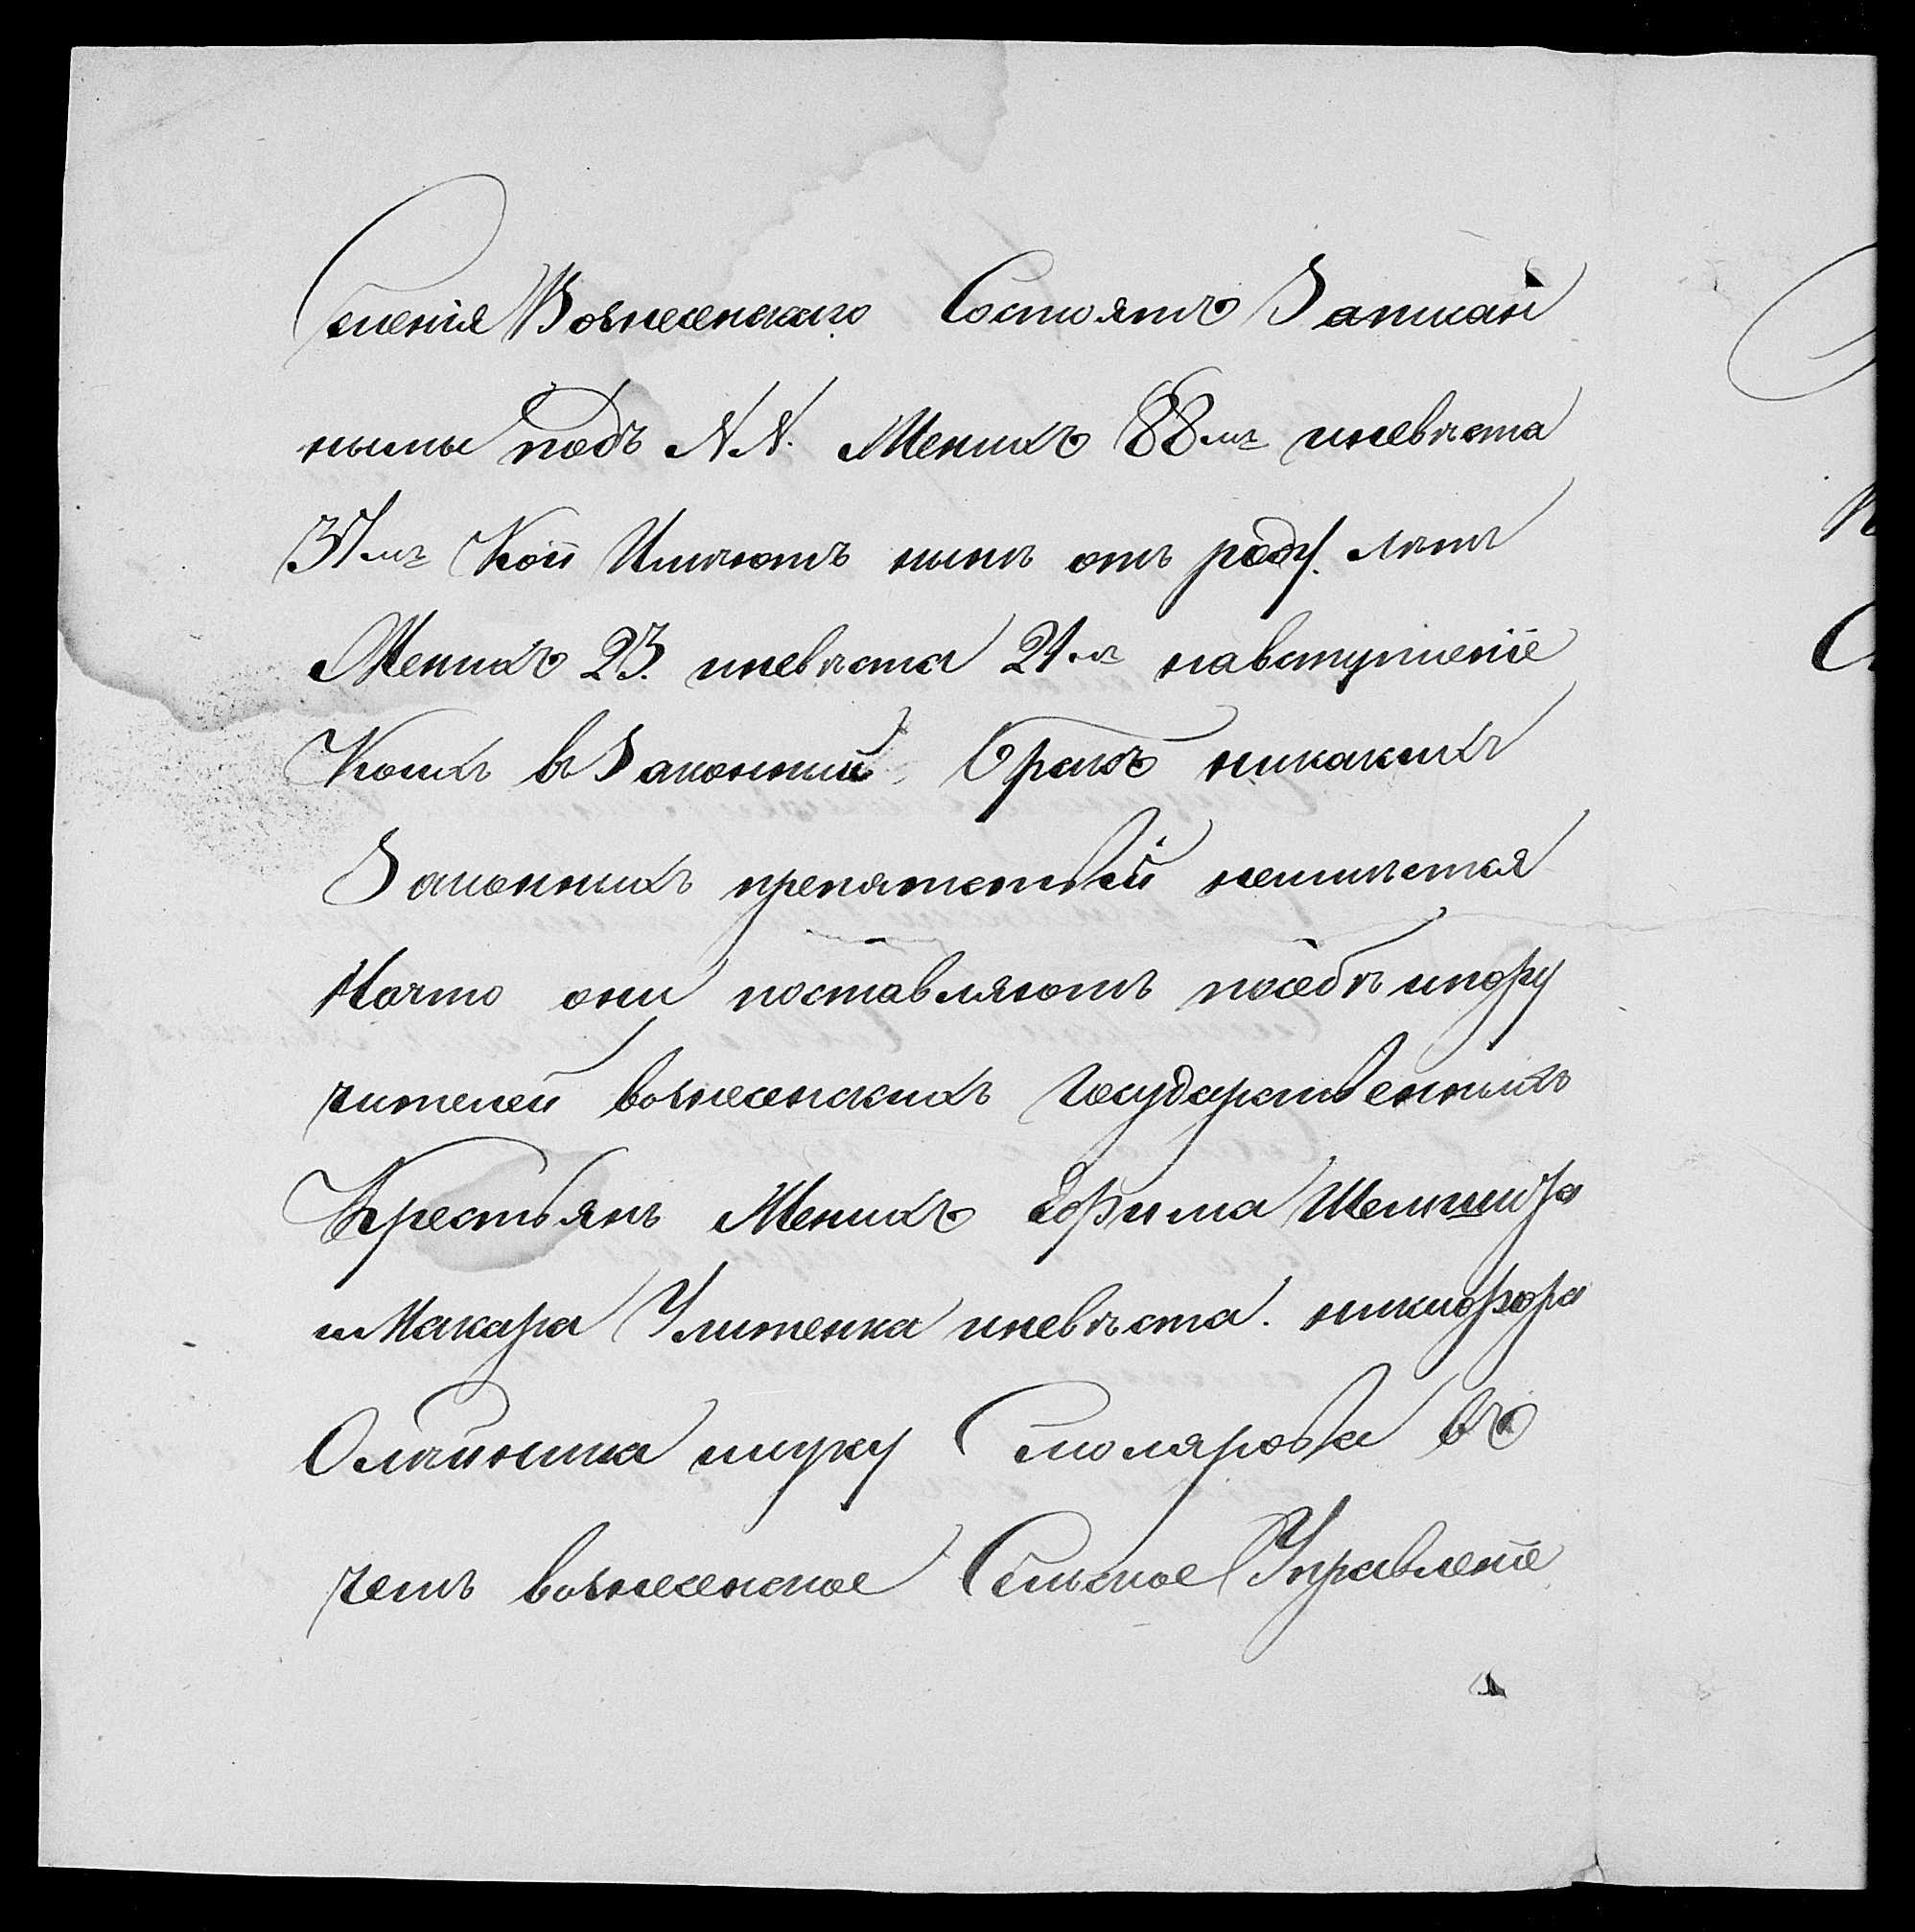 сленія Вознесенского Состоятъ Записан
ными подъ NN. Женихъ 88мъ иневѣста
37мъ Кои Имѣютъ нынѣ отъ роду. лѣтъ
Женихъ 23. иневѣста 21го навступленіе
Коихъ въ Законный Бракъ никакихъ
Законныхъ препятствій неимѣется
Начто они поставляютъ посебѣ ипору
чителей вознесенскихъ Государственныхъ
Крестьянъ Женихъ Ефима
иМакара Улитенка иневѣста. никифора
Олѣйника Столярова въ
чемъ вознесенское Сельское Управленіе